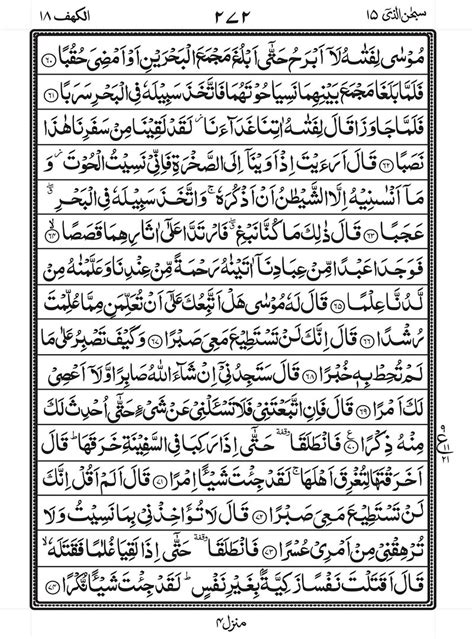 الكهف ١٨ ٢٧٢ سبحٰن الذیٓ ١٥
مُوۡسٰى لِفَتٰٮهُ لَاۤ اَبۡرَحُ حَتّٰۤى اَبۡلُغَ مَجۡمَعَ الۡبَحۡرَيۡنِ اَوۡ اَمۡضِىَ حُقُبًا ﴿٦٠﴾
فَلَمَّا بَلَغَا مَجۡمَعَ بَيۡنِهِمَا نَسِيَا حُوۡتَهُمَا فَاتَّخَذَ سَبِيۡلَهٗ فِى الۡبَحۡرِ سَرَبًا ﴿٦١﴾
فَلَمَّا جَاوَزَا قَالَ لِفَتٰٮهُ اٰتِنَا غَدَآءَنَا لَقَدۡ لَقِيۡنَا مِنۡ سَفَرِنَا هٰذَا
نَصَبًا ﴿٦٢﴾ قَالَ اَرَءَيۡتَ اِذۡ اَوَيۡنَاۤ اِلَى الصَّخۡرَةِ فَاِنِّىۡ نَسِيۡتُ الۡحُوۡتَ وَ
مَاۤ اَنۡسٰٮنِيۡهُ اِلَّا الشَّيۡطٰنُ اَنۡ اَذۡكُرَهٗ ۚ وَاتَّخَذَ سَبِيۡلَهٗ فِى الۡبَحۡرِ ۖ
عَجَبًا ﴿٦٣﴾ قَالَ ذٰلِكَ مَا كُنَّا نَبۡغِ ۖ فَارۡتَدَّا عَلٰٓى اٰثَارِهِمَا قَصَصًا ﴿٦٤﴾
فَوَجَدَا عَبۡدًا مِّنۡ عِبَادِنَاۤ اٰتَيۡنٰهُ رَحۡمَةً مِّنۡ عِنۡدِنَا وَعَلَّمۡنٰهُ مِنۡ
لَّدُنَّا عِلۡمًا ﴿٦٥﴾ قَالَ لَهٗ مُوۡسٰى هَلۡ اَتَّبِعُكَ عَلٰٓى اَنۡ تُعَلِّمَنِ مِمَّا عُلِّمۡتَ
رُشۡدًا ﴿٦٦﴾ قَالَ اِنَّكَ لَنۡ تَسۡتَطِيۡعَ مَعِىَ صَبۡرًا ﴿٦٧﴾ وَكَيۡفَ تَصۡبِرُ عَلٰى مَا
لَمۡ تُحِطۡ بِهٖ خُبۡرًا ﴿٦٨﴾ قَالَ سَتَجِدُنِىۡۤ اِنۡ شَآءَ اللّٰهُ صَابِرًا وَّلَاۤ اَعۡصِىۡ
لَكَ اَمۡرًا ﴿٦٩﴾ قَالَ فَاِنِ اتَّبَعۡتَنِىۡ فَلَا تَسۡــَٔلۡنِىۡ عَنۡ شَىۡءٍ حَتّٰٓى اُحۡدِثَ لَكَ
مِنۡهُ ذِكۡرًا ﴿٧٠﴾ ع فَانْطَلَقَا ۥ حَتّٰۤى اِذَا رَكِبَا فِى السَّفِيۡنَةِ خَرَقَهَا ؕ قَالَ
اَخَرَقۡتَهَا لِتُغۡرِقَ اَهۡلَهَا ۚ لَقَدۡ جِئۡتَ شَيۡــًٔا اِمۡرًا ﴿٧١﴾ قَالَ اَلَمۡ اَقُلۡ اِنَّكَ
لَنۡ تَسۡتَطِيۡعَ مَعِىَ صَبۡرًا ﴿٧٢﴾ قَالَ لَا تُؤَاخِذۡنِىۡ بِمَا نَسِيۡتُ وَلَا
تُرۡهِقۡنِىۡ مِنۡ اَمۡرِىۡ عُسۡرًا ﴿٧٣﴾ فَانْطَلَقَا ۥ حَتّٰٓى اِذَا لَقِيَا غُلٰمًا فَقَتَلَهٗ ۙ
قَالَ اَقَتَلۡتَ نَفۡسًا زَكِيَّةً ۢ بِغَيۡرِ نَفۡسٍ ؕ لَقَدۡ جِئۡتَ شَيۡــًٔا نُّكۡرًا ﴿٧٤﴾
٩ ع ١١ ٢١
منزل ٤